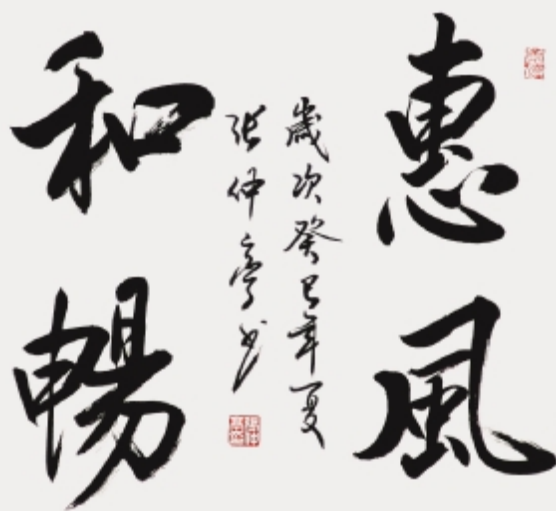 惠風
和暢
歲次癸巳年夏
張仲亭書